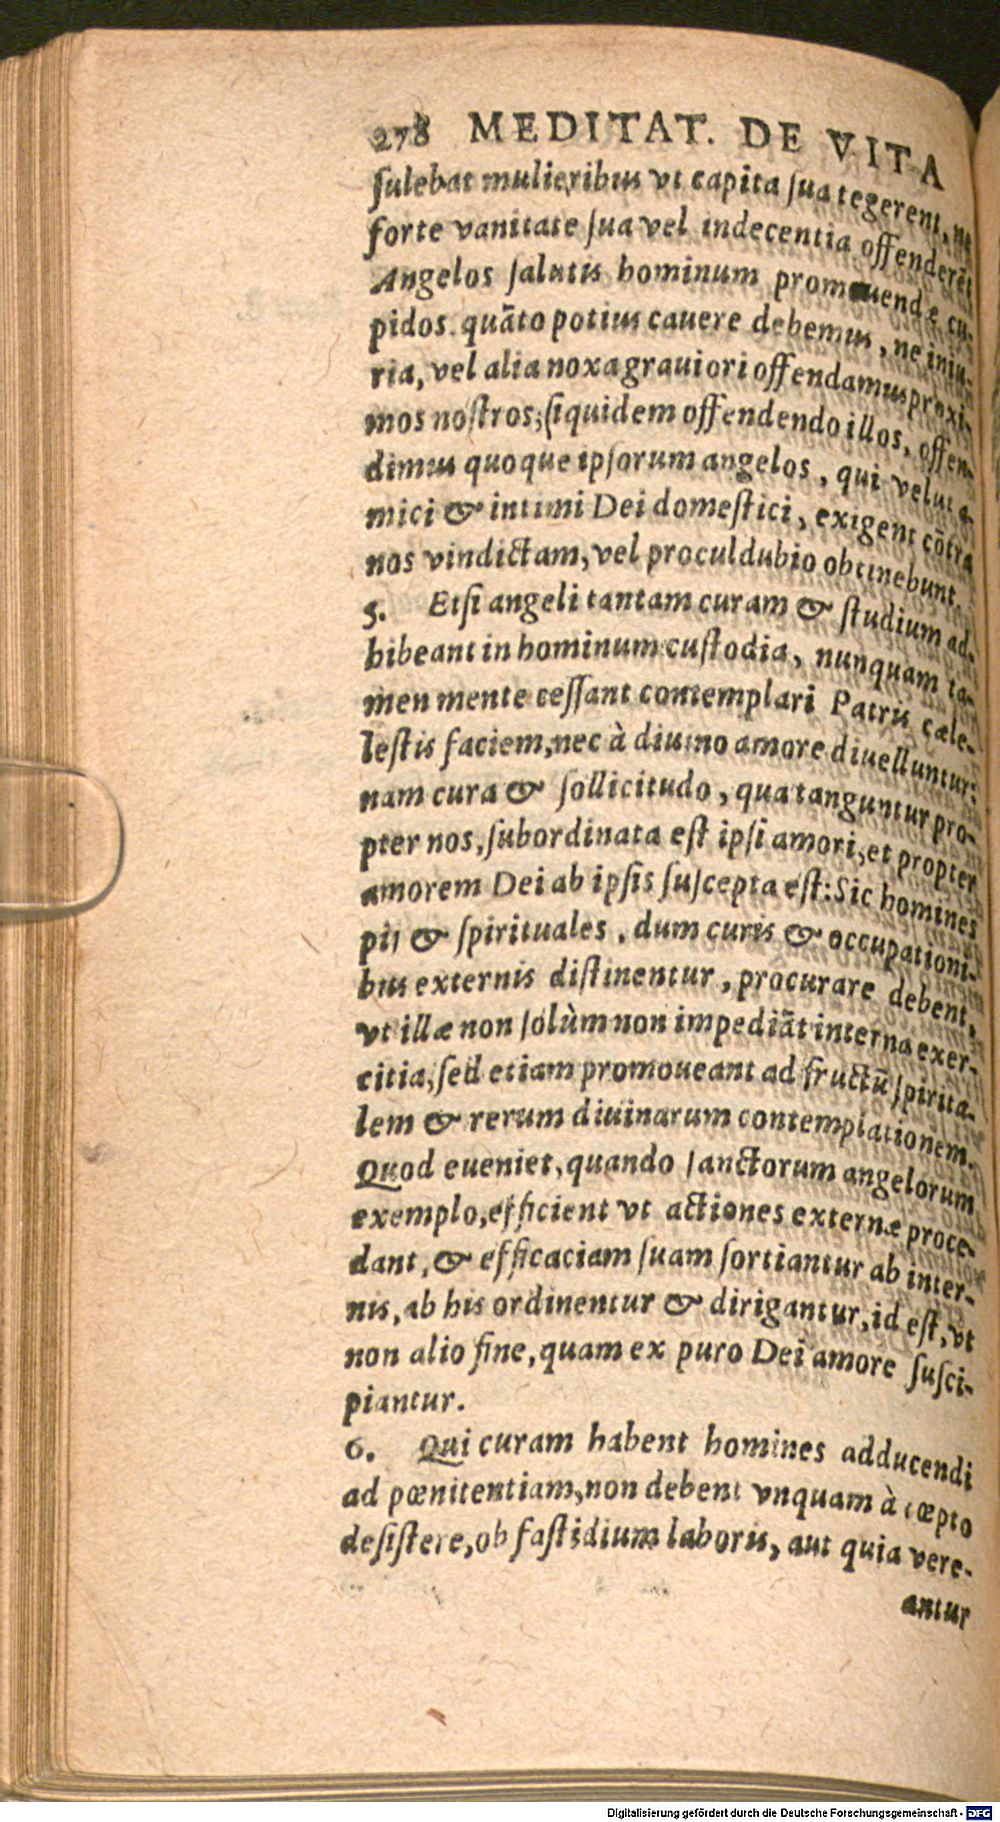 278 MEDITAT. DE VITA
ſulebat mulieribus vt capita ſua tegerent, ne
forte vanitate ſua vel indecentia offenderẽt
Angelos ſalutis hominum promouendæ cu-
pidos. quãto potius cauere debemus, ne iniu-
ria, vel alia noxa grauiori offendamus proxi-
mos noſtros; ſiquidem offendendo illos, offen-
dimus quoque ipſorum angelos, qui velut a-
mici & intimi Dei domeſtici, exigent cõtra
nos vindictam, vel proculdubio obtinebunt.
5. Etſi angeli tantam curam & ſtudium ad-
hibeant in hominum cuſtodia, nunquam ta-
men mente ceſſant contemplari Patris cæle-
leſtis faciem, nec à diuino amore diuelluntur:
nam cura & ſollicitudo, qua tanguntur pro-
pter nos, ſubordinata eſt ipſi amori, et propter
amorem Dei ab ipſis ſuſcepta eſt: Sic homines
pij & ſpirituales, dum curis & occupationi-
bus externis diſtinentur, procurare debent,
vt illæ non ſolùm non impediãt interna exer-
citia, ſed etiam promoueant ad fructũ ſpirita-
lem & rerum diuinarum contemplationem.
Quod eueniet, quando ſanctorum angelorum
exemplo, efficient vt actiones externæ proce-
dant, & efficaciam ſuam ſortiantur ab inter-
nis, ab his ordinentur & dirigantur, id eſt, vt
non alio fine, quam ex puro Dei amore ſuſci-
piantur.
6. Qui curam habent homines adducendi
ad pœnitentiam, non debent vnquam à cœpto
deſiſtere, ob faſtidium laboris, aut quia vere-
antur
Digitalisierung gefördert durch die Deutsche Forschungsgemeinschaft - DFG